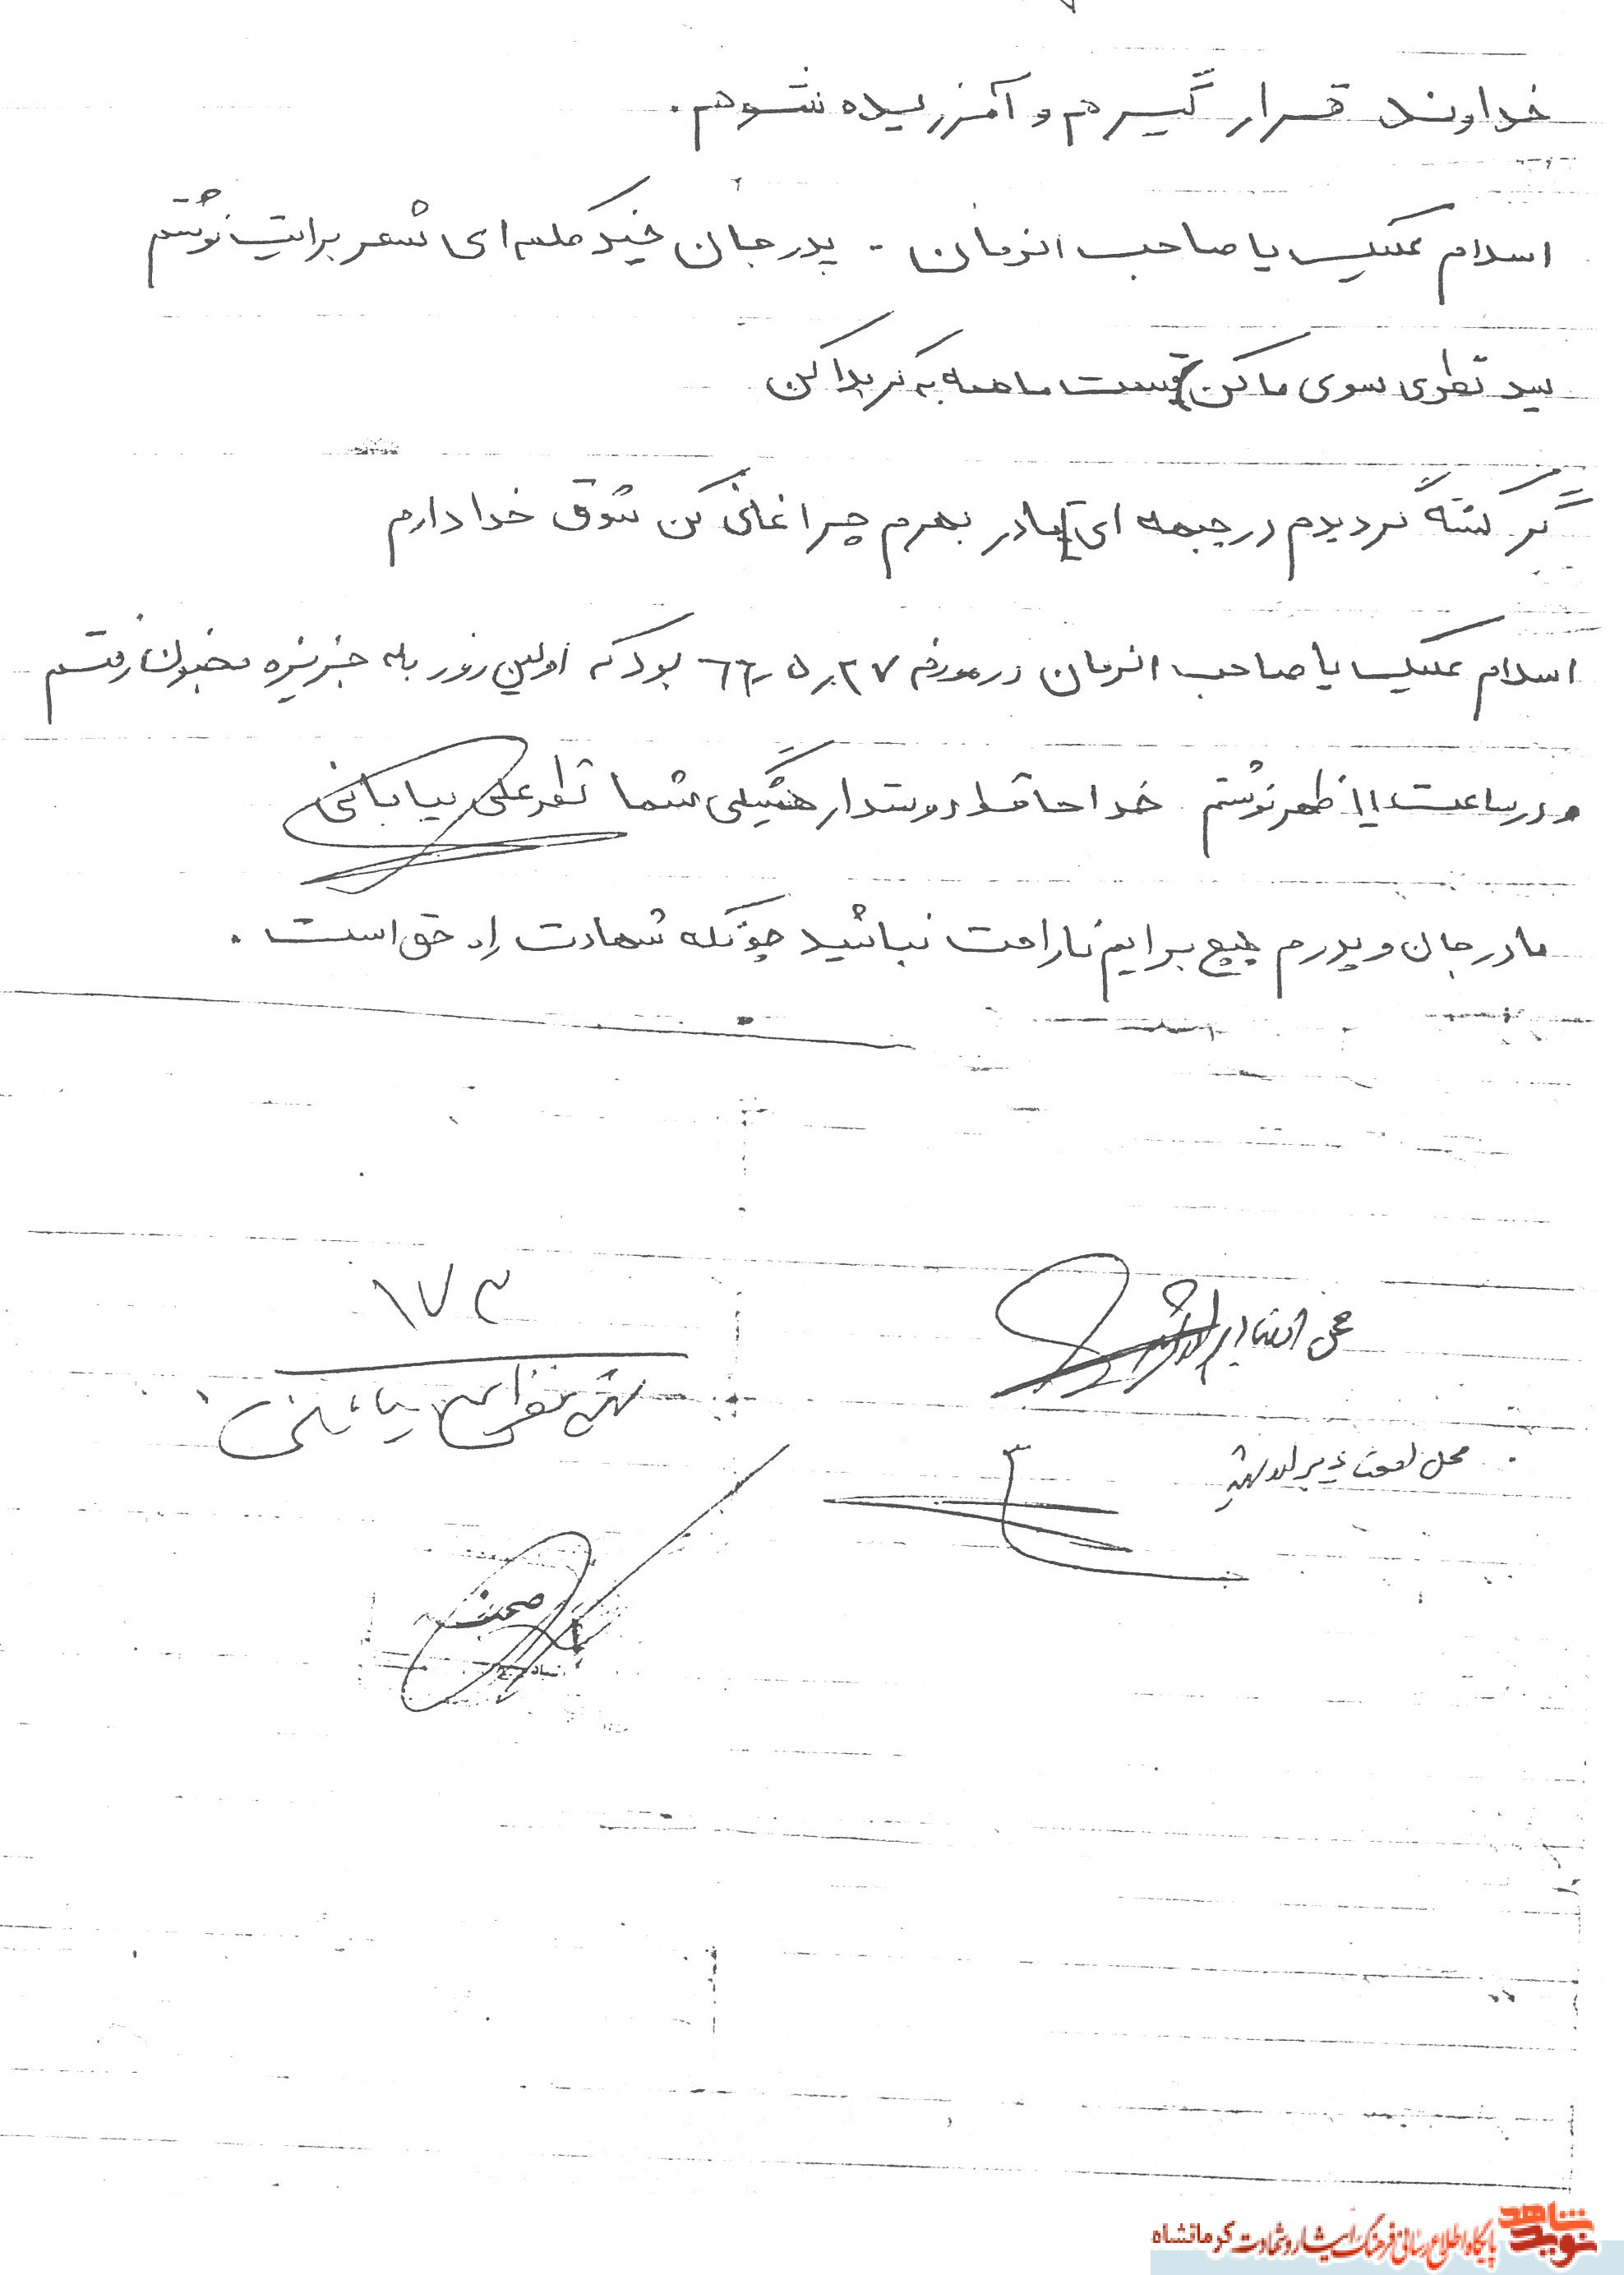 خداوند قرار گیرم و آمرزیده شوم.
اسلام علیک یا صاحب الزمان - پدر جان چند کلمه ای شعر برایت نوشتم
سید نظری سوی ما کن قسمت ما همه به کربلا کن
گر کشته گردیدم در جبهه ای مادر بهرم چراغانی کن شوق خدا دارم
اسلام علیک یا صاحب الزمان در مورخه ۲۷ ر۵ ر ۶۶ بود که اولین روز به جزیزه مجنون رفتم
و در ساعت ۱۱ ظهر نوشتم خدا حافظ دوستدار همشیگی شما نظر علی بیابانی
مادر جان و پدرم هیچ برایم ناراحت نباشید چونکه شهادت راه حق است.
۱۷۳
محل
محل
نوید شاهد
پایگاه اطلاع رسانی فرهنگ ایثار و شهادت کرمانشاه